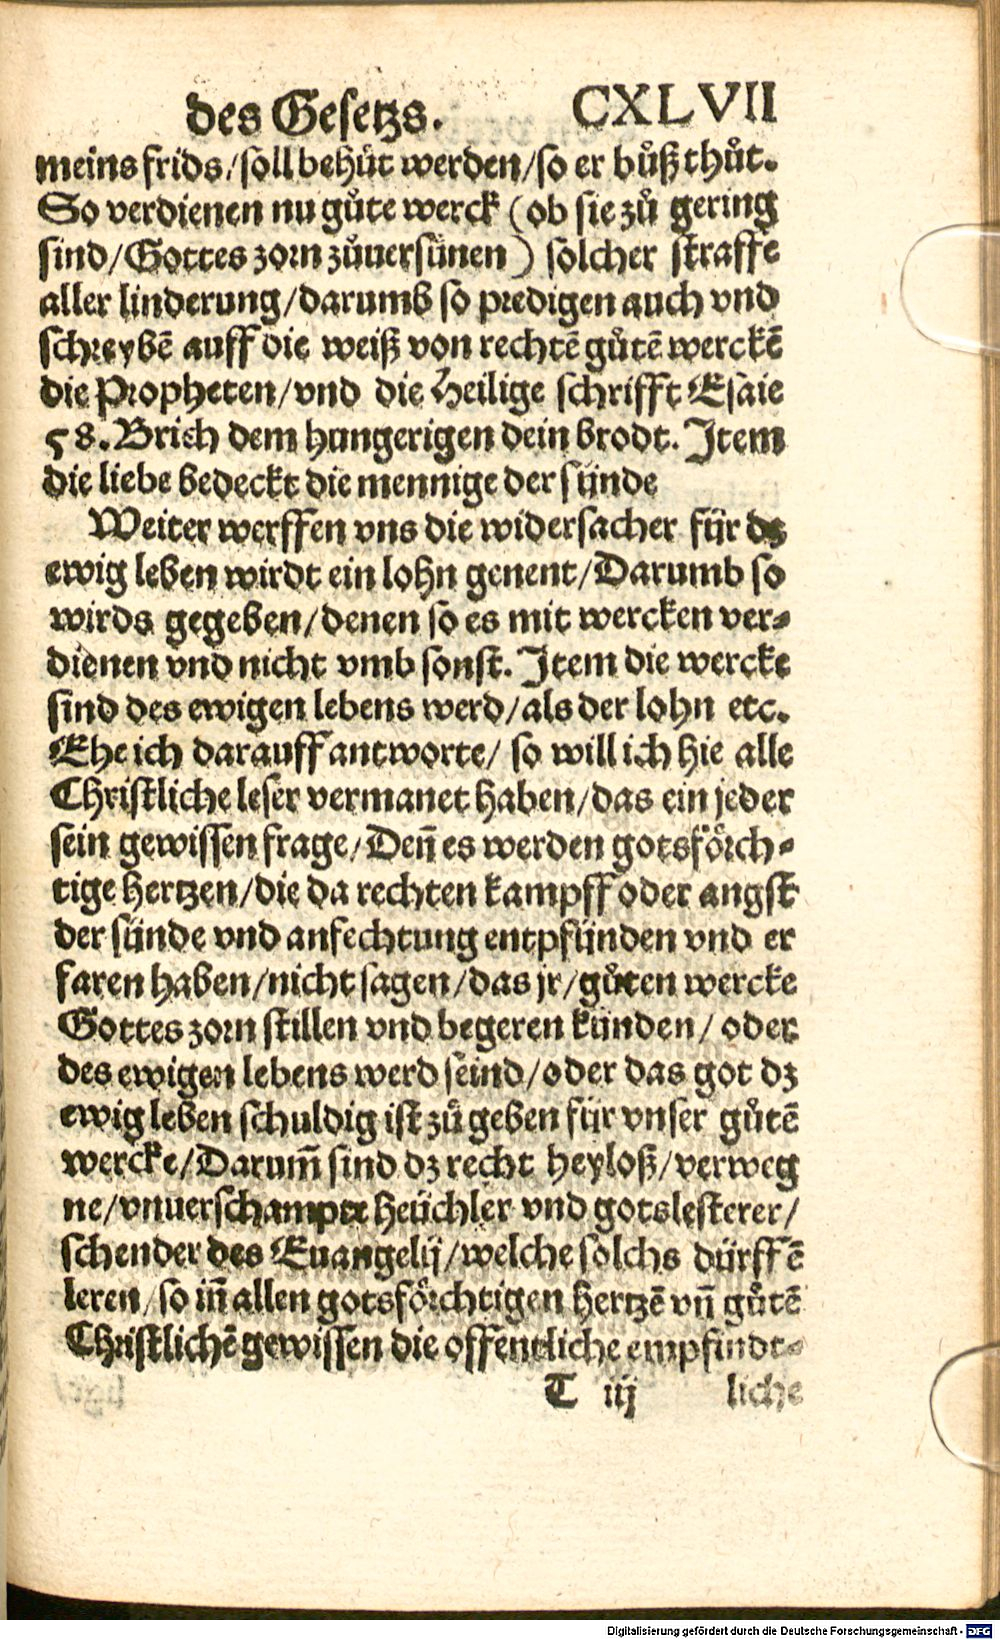 des Gesetzs. CXLVII
meins frids/soll behuͤt werden/so er buͦß thuͦt.
So verdienen nu guͦte werck (ob sie zuͦ gering
sind/Gottes zorn zuͦuersuͤnen) solcher straffe
aller linderung/darumb so predigen auch vnd
schreybē auff die weiß von rechtē guͦtē werckē
die Propheten/vnd die Heilige schrifft Esaie
58. Brich dem hungerigen dein brodt. Item
die liebe bedeckt die mennige der sünde
Weiter werffen vns die widersacher für dz
ewig leben wirdt ein lohn genent/Darumb so
wirds gegeben/denen so es mit wercken ver-
dienen vnd nicht vmb sonst. Item die wercke
sind des ewigen lebens werd/als der lohn etc.
Ehe ich darauff antworte/ so will ich hie alle
Christliche leser vermanet haben/das ein jeder
sein gewissen frage/Deñ es werden gotsförch-
tige hertzen/die da rechten kampff oder angst
der sünde vnd anfechtung entpfünden vnd er
faren haben/nicht sagen/das jr/guͦten wercke
Gottes zorn stillen vnd begeren künden/ oder
des ewigen lebens werd seind/oder das got dz
ewig leben schuldig ist zuͦ geben für vnser guͦtē
wercke/Darum̃ sind dz recht heyloß/verweg
ne/vnuerschampte heüchler vnd gotslesterer/
schender des Euangelij/welche solchs dürffē
leren/so iñ allen gotsförchtigen hertzē vñ guͦtē
Christlichē gewissen die offentliche empfindt-
T iij liche
Digitalisierung gefördert durch die Deutsche Forschungsgemeinschaft - DFG